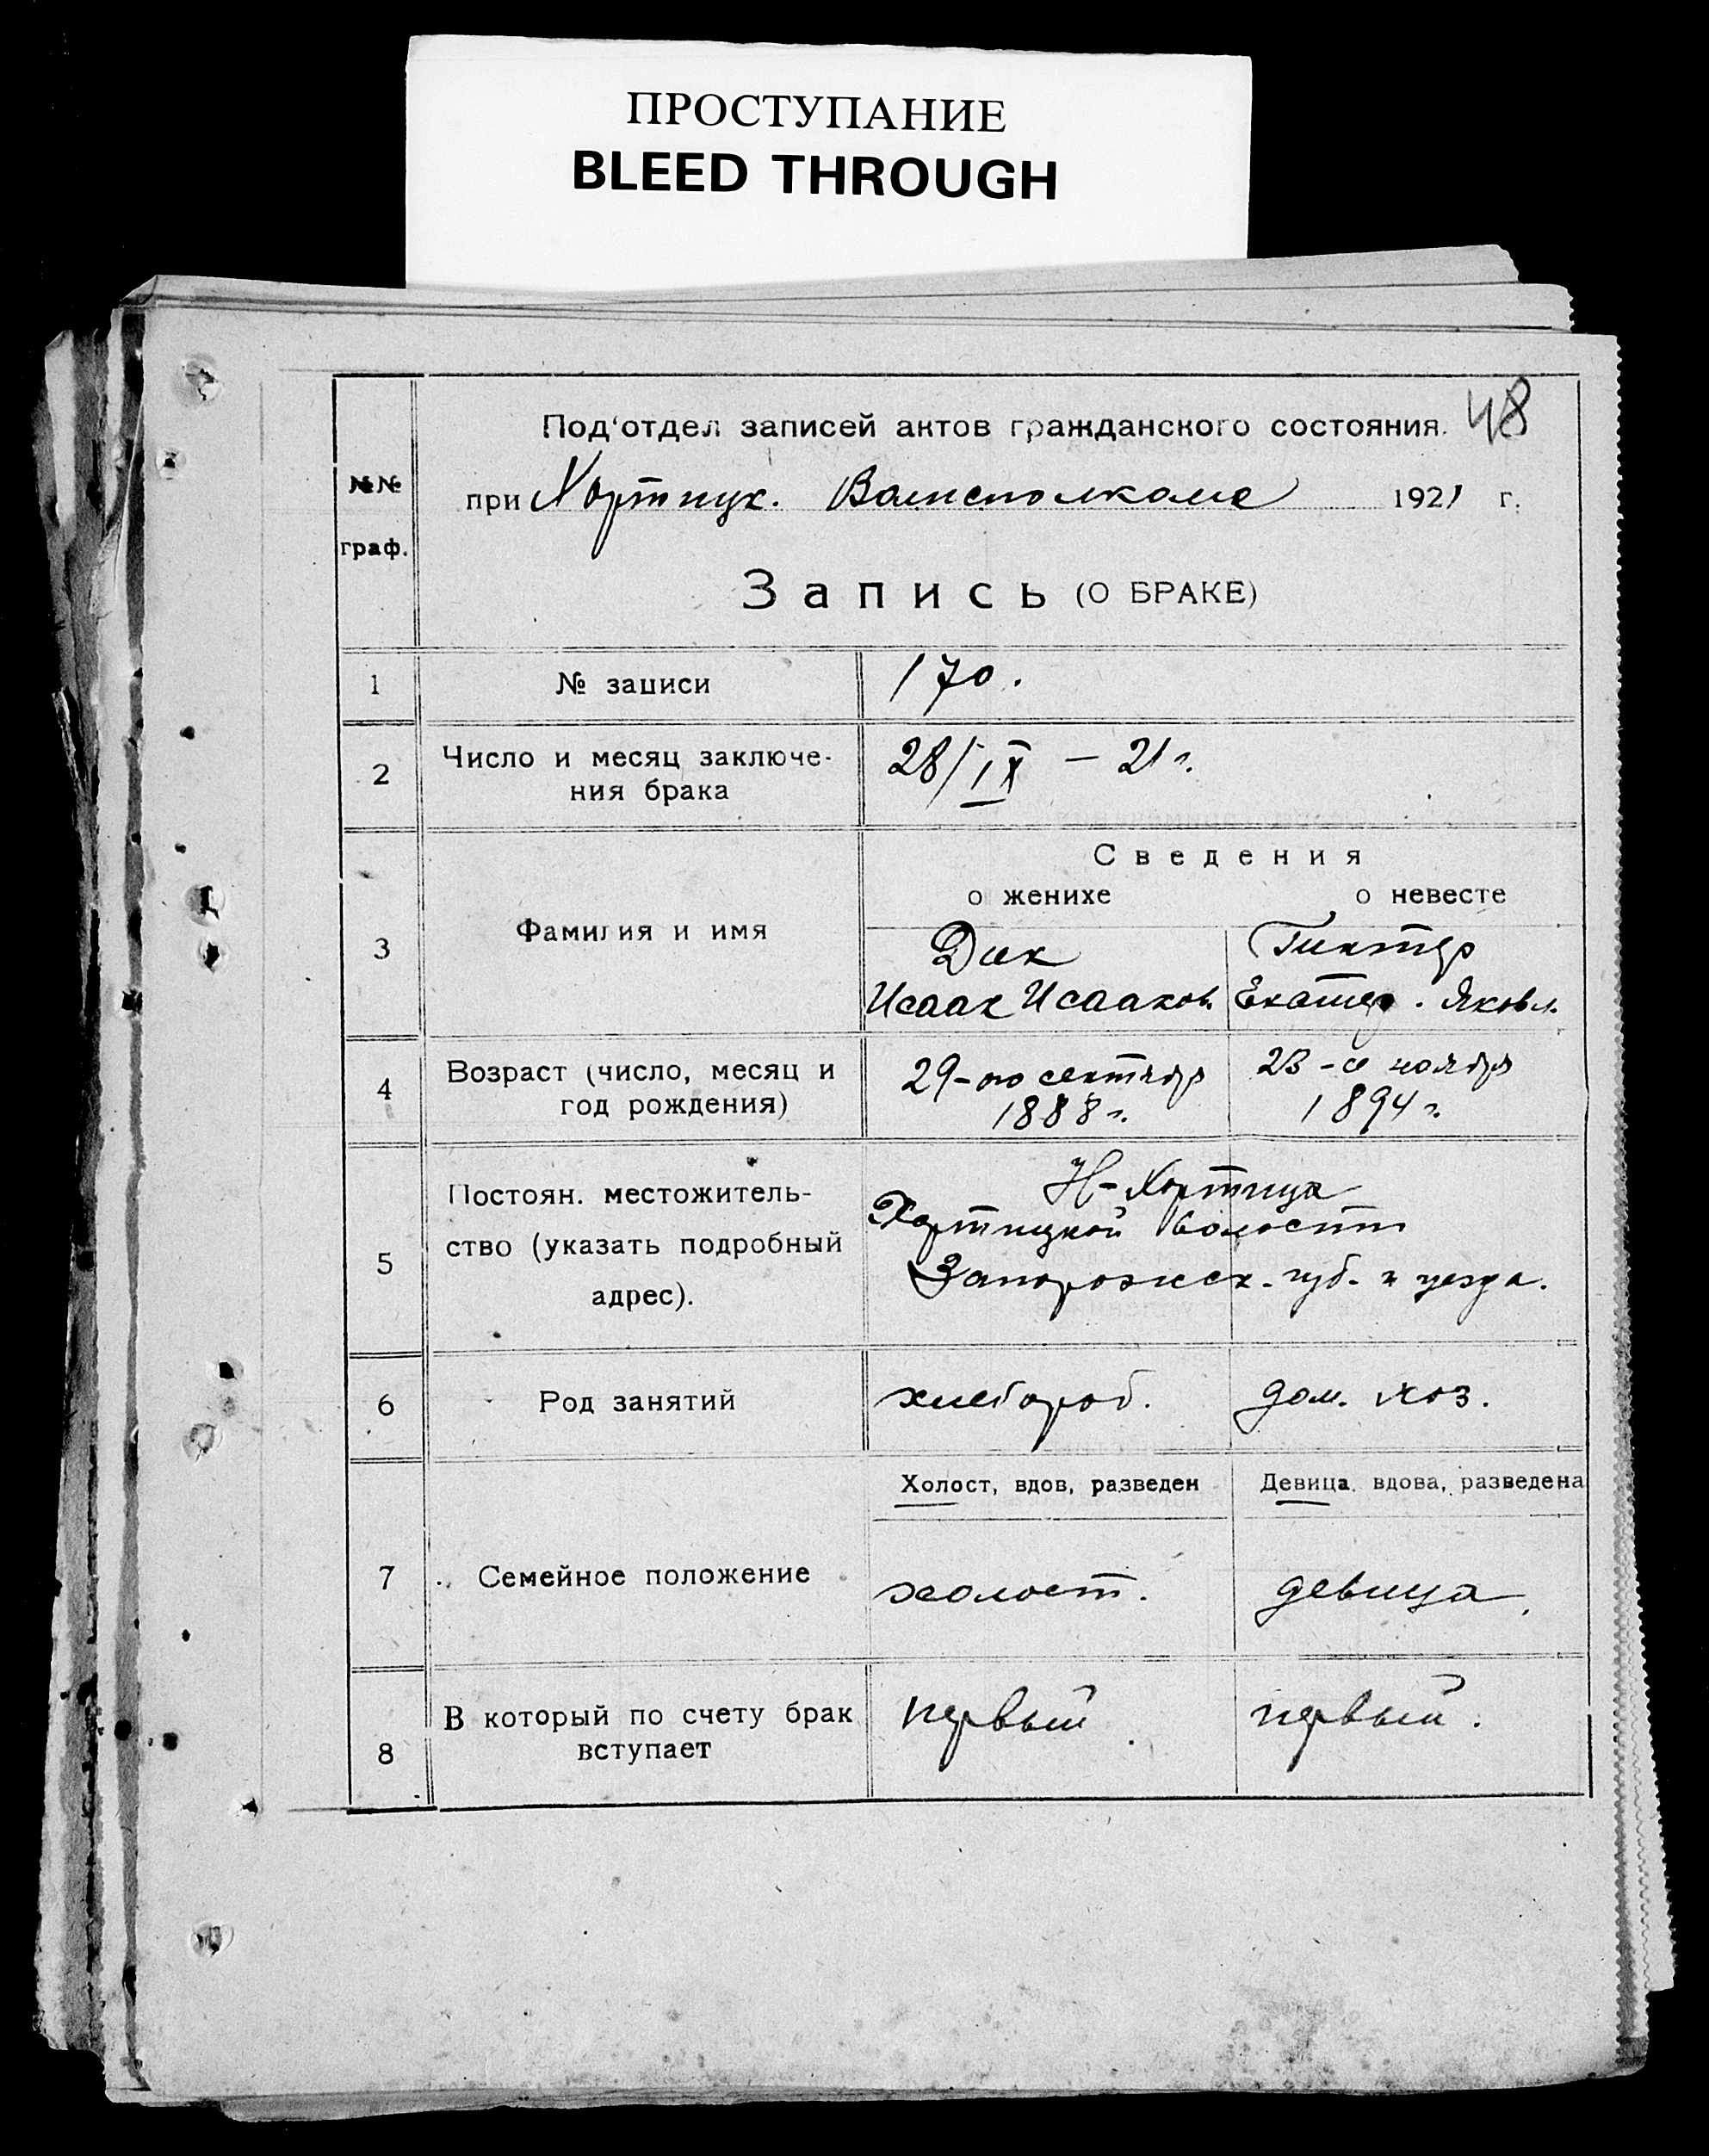 ПРОСТУПАНИЕ
BLEED THROUGH
48
Под'отдел записей актов гражданского состояния.
№№ граф.
при Хортицк. Волисполкоме 1921 г.
Запись (О БРАКЕ)
1 № записи 170.
2 Число и месяц заключе-
ния брака 28/IX – 21 г.
Сведения
о женихе о невесте
3 Фамилия и имя Дик Гинтер
Исаак Исааков. Екатер. Яковл.
4 Возраст (число, месяц и 29-го сентябр 23-е ноябр
год рождения) 1888 г. 1894 г.
Н-Хортица
5 Постоян. местожитель- Хортицкой волости
ство (указать подробный Запорожск. губ. и уезда.
адрес).
6 Род занятий хлебороб. дом. хоз.
Холост, вдов, разведен Девица, вдова, разведена
7 Семейное положение холост. девица.
8 В который по счету брак первый первый.
вступает